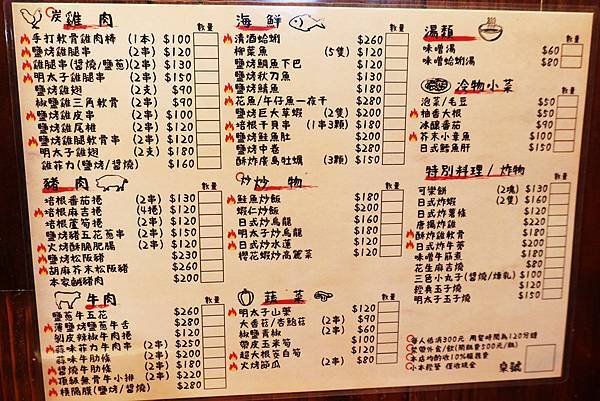 炭 雞肉 數量
手打軟骨雞肉棒 (1本) $100
鹽烤雞腿串 (2串) $120
雞腿串(醬燒/鹽蔥)(2串) $130
明太子雞腿串 (2串) $150
鹽烤雞翅 (2支) $90
椒鹽雞三角軟骨 $90
鹽烤雞皮串 (2串) $100
鹽烤雞尾椎 (2串) $120
鹽烤雞腿軟骨串 (2串) $120
明太子雞翅 (2支) $180
雞菲力(鹽烤/醬燒) $160
豬肉 數量
培根番茄捲 (2串) $130
培根麻吉捲 (4捲) $120
培根蘆筍捲 (2串) $120
鹽烤豬五花蔥串 (2串) $150
火烤酥脆肥腸 (2串) $120
鹽烤松阪豬 $230
胡麻芥末松阪豬 $260
本家鹹豬肉 $200
牛肉 數量
鹽蔥牛五花 $260
薄鹽烤鹽蔥牛舌 $280
剝皮辣椒牛肉捲 $120
蒜味菲力牛肉串 (2串) $250
蒜味牛肋條 (2串) $200
醬燒牛肋條 (2串) $200
頂級無骨牛小排 (2串) $220
橫隔膜(鹽烤/醬燒) $280
海鮮 數量
清酒蛤蜊 $260
柳葉魚 (5隻) $120
鹽烤鯛魚下巴 $120
鹽烤秋刀魚 $130
鹽烤鯖魚 $180
花魚/午仔魚一夜干 $280
鹽烤巨大草蝦 (2隻) $200
培根干貝串 (1串3顆) $180
鹽烤鮭魚肚 $200
鹽烤中卷 $280
酥炸廣島牡蠣 (3顆) $150
炒 炒物 數量
鮭魚炒飯 $180
蝦仁炒飯 $120
日式炒烏龍 $120
明太子炒烏龍 $180
日式炒水蓮 $120
櫻花蝦炒高麗菜 $120
蔬菜 數量
明太子山藥 $120
大香菇/杏鮑菇 (2串) $90
椒鹽青椒 (2串) $60
帶皮玉米筍 $120
超大根茭白筍 $100
火烤節瓜 (2串) $80
湯類 數量
味噌湯 $60
味噌蛤蜊湯 $80
冷物小菜 數量
泡菜/毛豆 $50
柚香大根 $50
冰釀番茄 $90
芥末小章魚 $100
日式鮪魚肝 $150
特別料理/炸物 數量
可樂餅 (2塊) $130
日式炸蝦 (2隻) $160
日式炸薯條 $100
唐揚炸雞 $150
酥炸雞軟骨 $180
日式炸牛蒡 $120
味噌牛筋煮 $200
花生麻吉燒 $80
三色小丸子(醬燒/煉乳) $100
經典玉子燒 $150
明太子玉子燒 $180
每人低消300元 用餐時間為120分鐘
禁帶外食/飲(開瓶費500元/瓶)
本店均酌收10%服務費
小本經營 僅收現金
桌號